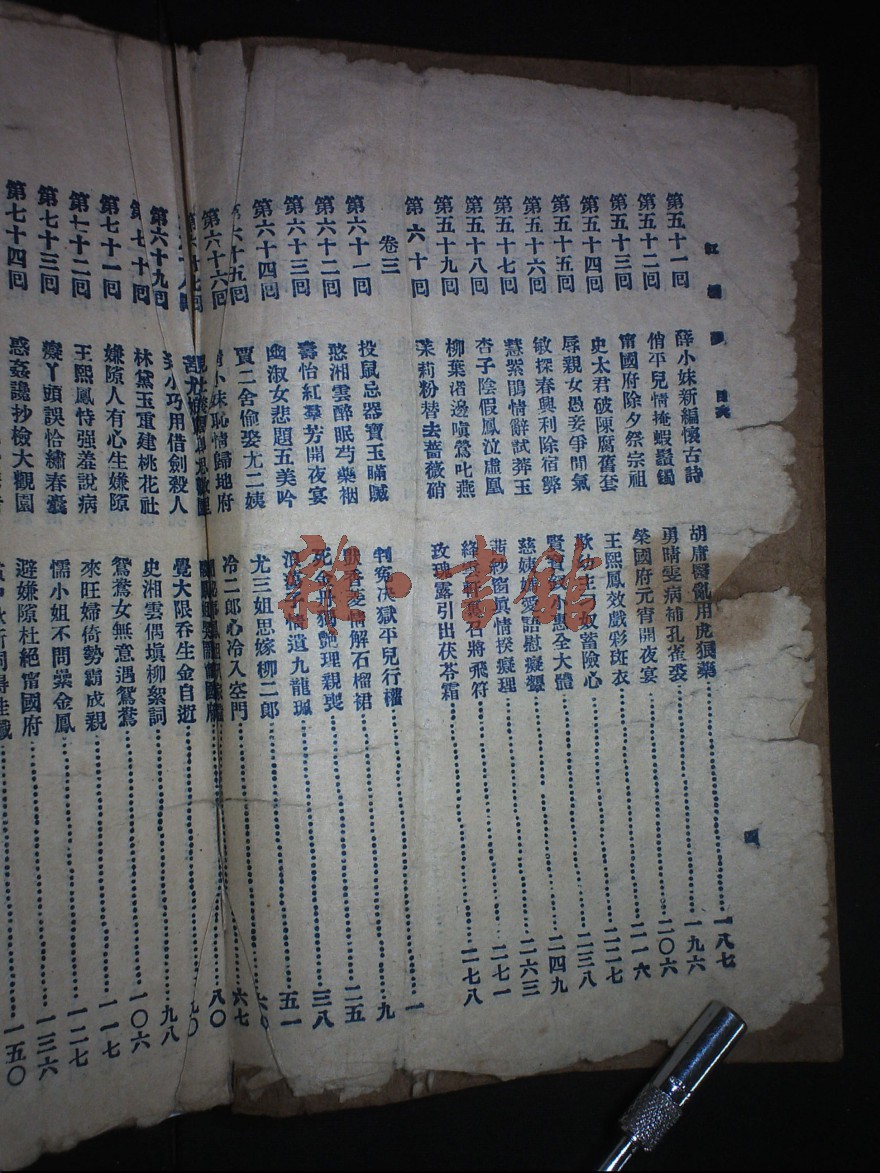 紅樓夢 目次
四
第五十一回 薛小妹新編懷古詩 胡庸醫亂用虎狼藥 一八七
第五十二回 俏平兒情掩蝦鬚鐲 勇晴雯病補孔雀裘 一九六
第五十三回 甯國府除夕祭宗祖 榮國府元宵開夜宴 二〇六
第五十四回 史太君破陳腐舊套 王熙鳳效戲彩斑衣 二一六
第五十五回 辱親女愚妾爭閒氣 欺幼主刁奴蓄險心 二二七
第五十六回 敏探春興利除宿弊 賢寶釵小惠全大體 二三八
第五十七回 慧紫鵑情辭試莽玉 慈姨媽愛語慰癡顰 二四九
第五十八回 杏子陰假鳳泣虛凰 茜紗窗真情揆癡理 二六三
第五十九回 柳葉渚邊嗔鶯叱燕 絳芸軒裏召將飛符 二七一
第六十回 茉莉粉替去薔薇硝 玫瑰露引出茯苓霜 二七八
卷三
第六十一回 投鼠忌器寶玉瞞贓 判冤決獄平兒行權 一
第六十二回 憨湘雲醉眠芍藥裀 獃香菱情解石榴裙 九
第六十三回 壽怡紅羣芳開夜宴 死金丹獨艷理親喪 二五
第六十四回 幽淑女悲題五美吟 浪蕩子情遺九龍珮 三八
第六十五回 賈二舍偷娶尤二姨 尤三姐思嫁柳二郎 五一
第六十六回 情小妹恥情歸地府 冷二郎心冷入空門
六七
八〇
第六十九回 小巧用借劍殺人 覺大限吞生金自逝
第七十回 林黛玉重建桃花社 史湘雲偶填柳絮詞 九八
第七十一回 嫌隙人有心生嫌隙 鴛鴦女無意遇鴛鴦 一〇六
第七十二回 王熙鳳恃强羞說病 來旺婦倚勢霸成親 一一七
第七十三回 癡丫頭誤拾繡春囊 懦小姐不問纍金鳳 一二七
第七十四回 惑奸讒抄檢大觀園 避嫌隙杜絕甯國府 一三六
一五〇
雜·書館